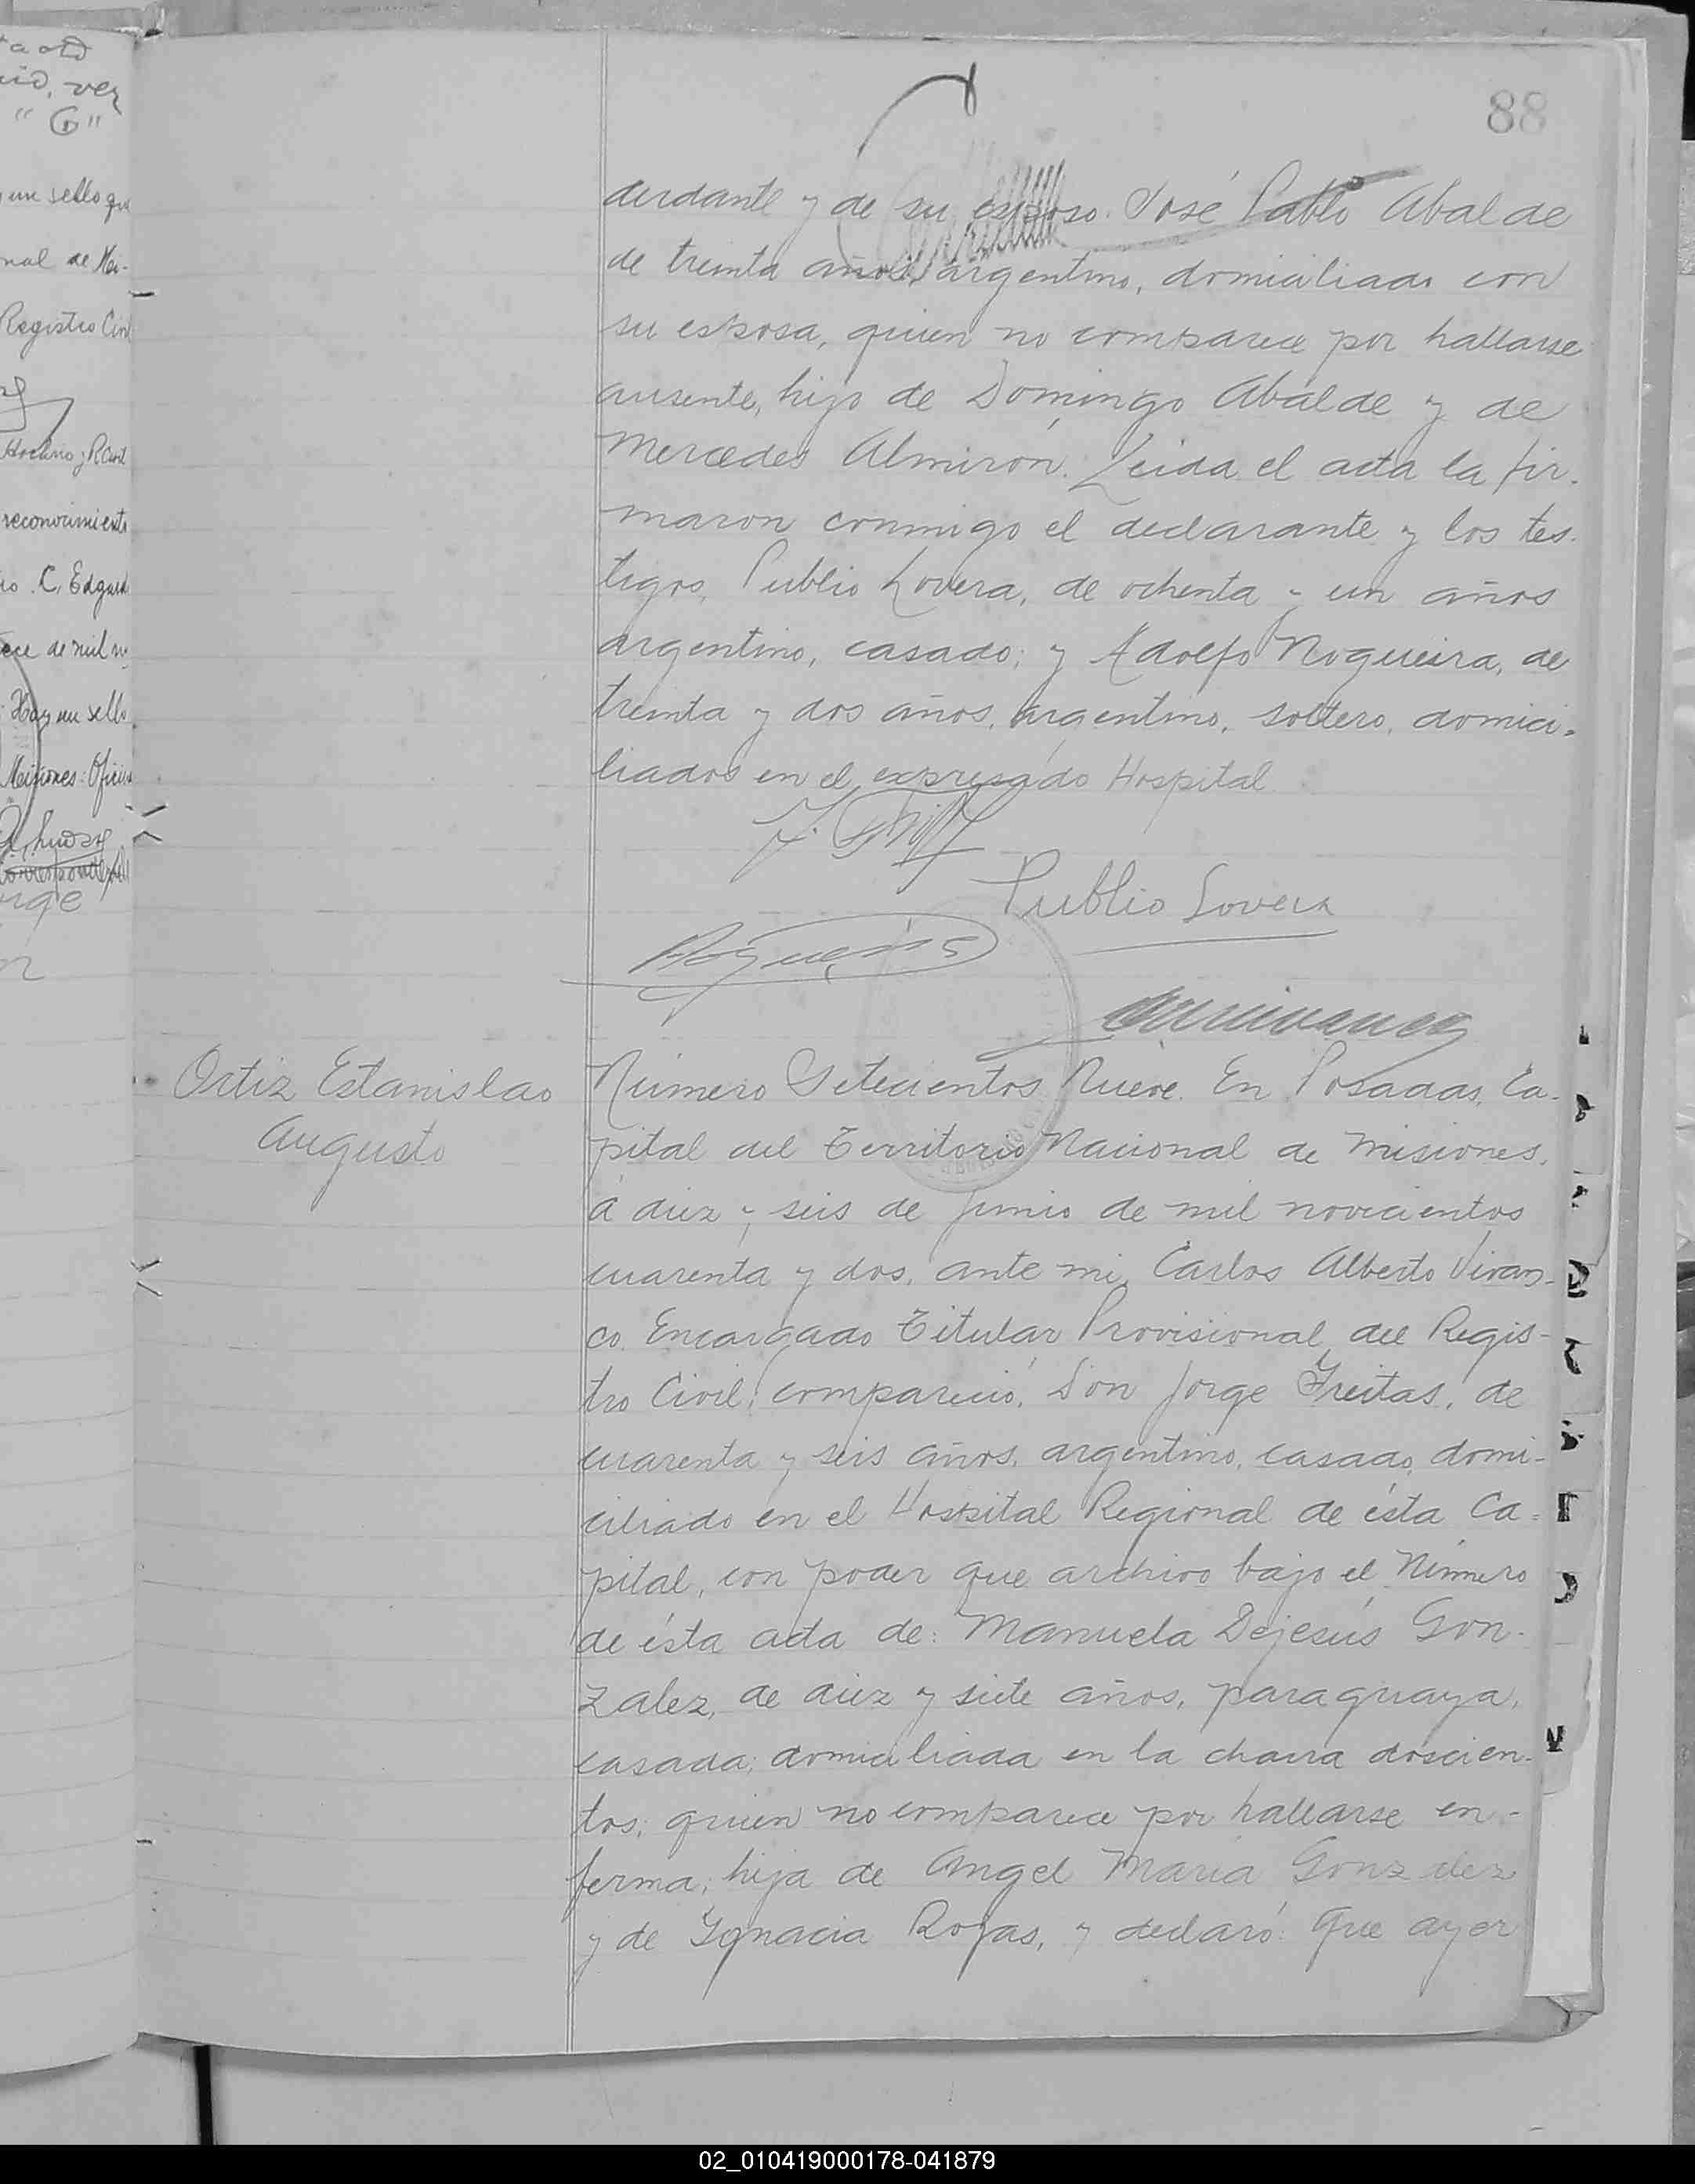 ta otd
uid, ver
" G"
un sello que
nal de Mi-
Registro Civil
reconocimiento
C. Edgard
de mil no
Hay un sello
Misiones: Oficina
88
derdante y de su esposo. José Pablo Abalde
de treinta años, argentino, domiciliado con
su esposa, quien no comparece por hallarse
ausente, hijo de Domingo Abalde y de
Mercedes Almirón. Leida el acta la fir-
maron conmigo el declarante y los tes-
tigos, Publio Lovera, de ochenta y un años
argentino, casado; y Adolfo Nogueira, de
treinta y dos años, argentino, soltero, domici-
liados en el expresado Hospital.
Publio Lovera
Ortiz Estanislao
Augusto
Número Setecientos Nueve. En Posadas, Ca-
pital del Territorio Nacional de Misiones,
á diez y seis de Junio de mil novecientos
cuarenta y dos, ante mi, Carlos Alberto Vivan-
co Encargado Titular Provisional del Regis-
tro Civil; compareció, Don Jorge Freitas, de
cuarenta y seis años, argentino, casado, domi-
ciliado en el Hospital Regional de ésta Ca-
pital, con poder que archivo bajo el Número
de ésta acta de: Manuela Dejesús Gon-
zalez, de diez y siete años, paraguaya,
casada; domiciliada en la chacra doscien-
tos; quien no comparece por hallarse en-
ferma; hija de Angel Maria Gonzalez
y de Ignacia Rojas, y declaró: Que ayer
02_010419000178-041879